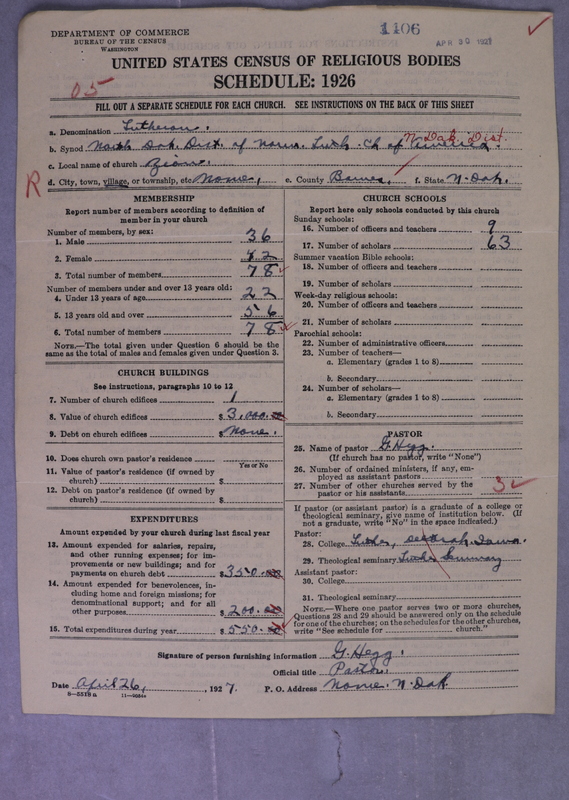 1106
APR 30 1927
DEPARTMENT OF COMMERCE
BUREAU OF THE CENSUS
WASHINGTON
UNITED STATES CENSUS OF RELIGIOUS BODIES
SCHEDULE: 1926
05
FILL OUT A SEPARATE SCHEDULE FOR EACH CHURCH. SEE INSTRUCTIONS ON THE BACK OF THIS SHEET
a. Denomination Lutheran.
N. Dak. Dist.
b. Synod North Dak. Dist. of Norw. Luth. Ch of America.
c. Local name of church Zion.
R
d. City, town, village, or township, etc. Nome, e. County Barnes, f. State N. Dak.
MEMBERSHIP
Report number of members according to definition of
member in your church
Number of members, by sex:
1. Male 36
2. Female 42
3. Total number of members 78
Number of members under and over 13 years old:
4. Under 13 years of age 22
5. 13 years old and over 56
6. Total number of members 78
NOTE.—The total given under Question 6 should be the
same as the total of males and females given under Question 3.
CHURCH BUILDINGS
See instructions, paragraphs 10 to 12
7. Number of church edifices 1
8. Value of church edifices $ 3,000.00
9. Debt on church edifices $ None.
10. Does church own pastor's residence?
Yes or No
11. Value of pastor's residence (if owned by
church) $
12. Debt on pastor's residence (if owned by
church) $
EXPENDITURES
Amount expended by your church during last fiscal year
13. Amount expended for salaries, repairs,
and other running expenses; for im-
provements or new buildings; and for
payments on church debt $ 350.00
14. Amount expended for benevolences, in-
cluding home and foreign missions; for
denominational support; and for all
other purposes $ 200.00
15. Total expenditures during year $ 550.00
CHURCH SCHOOLS
Report here only schools conducted by this church
Sunday schools:
16. Number of officers and teachers 9
17. Number of scholars 63
Summer vacation Bible schools:
18. Number of officers and teachers
19. Number of scholars
Week-day religious schools:
20. Number of officers and teachers
21. Number of scholars
Parochial schools:
22. Number of administrative officers
23. Number of teachers—
a. Elementary (grades 1 to 8)
b. Secondary
24. Number of scholars—
a. Elementary (grades 1 to 8)
b. Secondary
PASTOR
25. Name of pastor G. Hegg.
(If church has no pastor, write "None")
26. Number of ordained ministers, if any, em-
ployed as assistant pastors
27. Number of other churches served by the
pastor or his assistants 3
If pastor (or assistant pastor) is a graduate of a college or
theological seminary, give name of institution below. (If
not a graduate, write "No" in the space indicated.)
Pastor:
28. College Luther, Decorah, Iowa.
29. Theological seminary Luther Seminary
Assistant pastor:
30. College
31. Theological seminary
NOTE.—Where one pastor serves two or more churches,
Questions 28 and 29 should be answered only on the schedule
for one of the churches; on the schedules for the other churches,
write "See schedule for church."
Signature of person furnishing information G. Hegg.
Official title Pastor.
Date April 26, , 1927. P. O. Address Nome. N. Dak.
8—5518a 11—9084